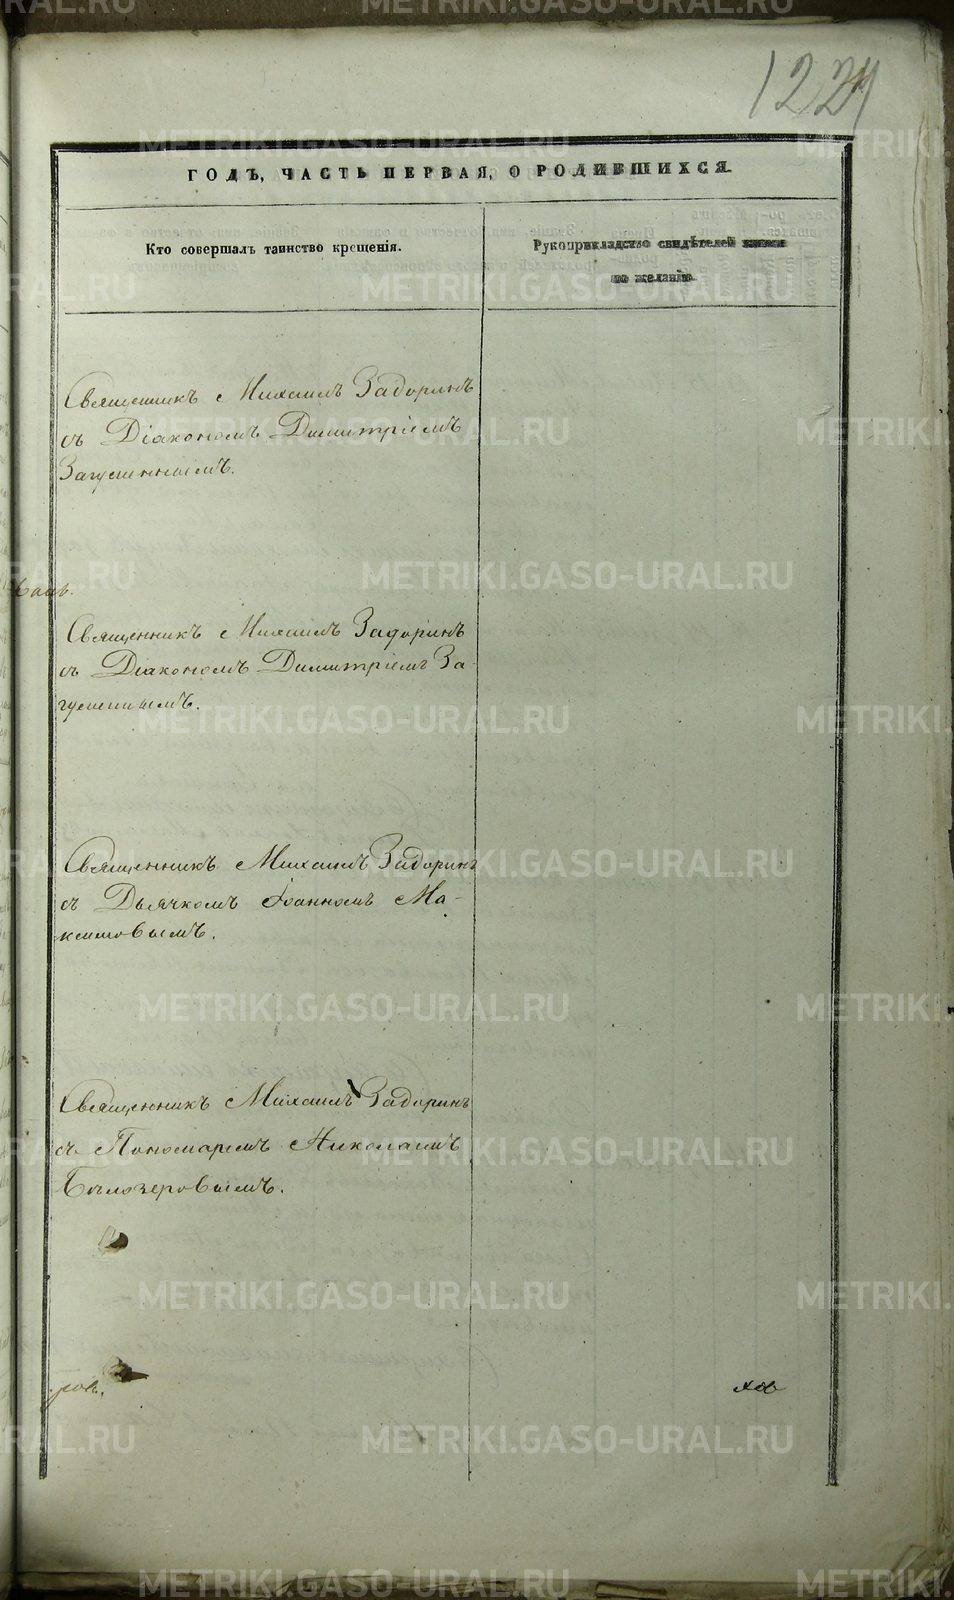 1224
ГОДЪ, ЧАСТЬ ПЕРВАЯ, О РОДИВШИХСЯ.
Кто совершалъ таинство крещенія.
Рукоприкладство свидѣтелей записи
по желанію.
Священникъ Михаилъ Задоринъ
съ Діакономъ Димитріемъ
Загуменнымъ.
Священникъ Михаилъ Задоринъ
съ Діакономъ Димитріемъ За-
гуменнымъ.
Священникъ Михаилъ Задоринъ
съ Дьячкомъ Іоанномъ Ма-
ксимовымъ.
Священникъ Михаилъ Задоринъ
съ Пономаремъ Николаемъ
Бѣлозеровымъ.
ровъ.
METRIKI.GASO-URAL.RU